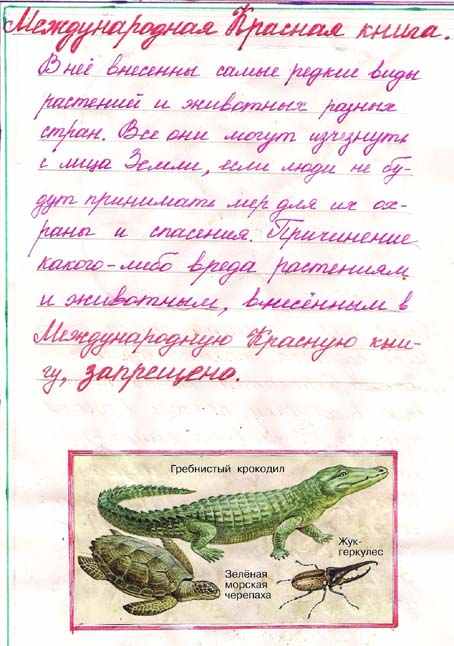 Международная Красная книга.
В неё внесенны самые редкие виды
растений и животных разных
стран. Все они могут изчезнуть
с лица Земли, если люди не бу-
дут принимать мер для их ох-
раны и спасения. Причинение
какого-либо вреда растениям
и животным, внесённым в
Международную Красную кни-
гу, запрещено.
Гребнистый крокодил
Жук-
геркулес
Зелёная
морская
черепаха